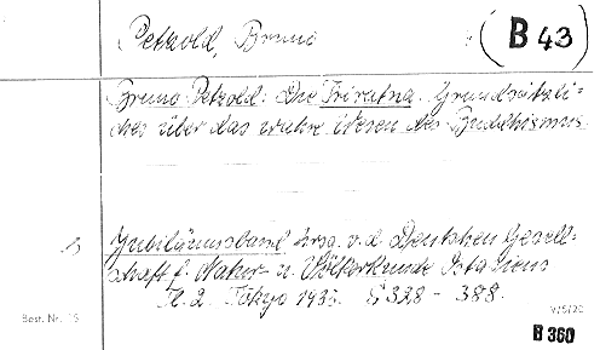 Petzold, Bruno
(B 43)
Bruno Petzold: Die Triratna. Grundsätzli=
ches über das wahre Wesen des Buddhismus.
Jubiläumsband hrsg. v. d. Deutschen Gesell=
schaft f. Natur- u. Völkerkunde Ostasiens
Tl. 2. Tōkyō 193 S 328 - 388.
Best. Nr. 15
V/5/22
B 360